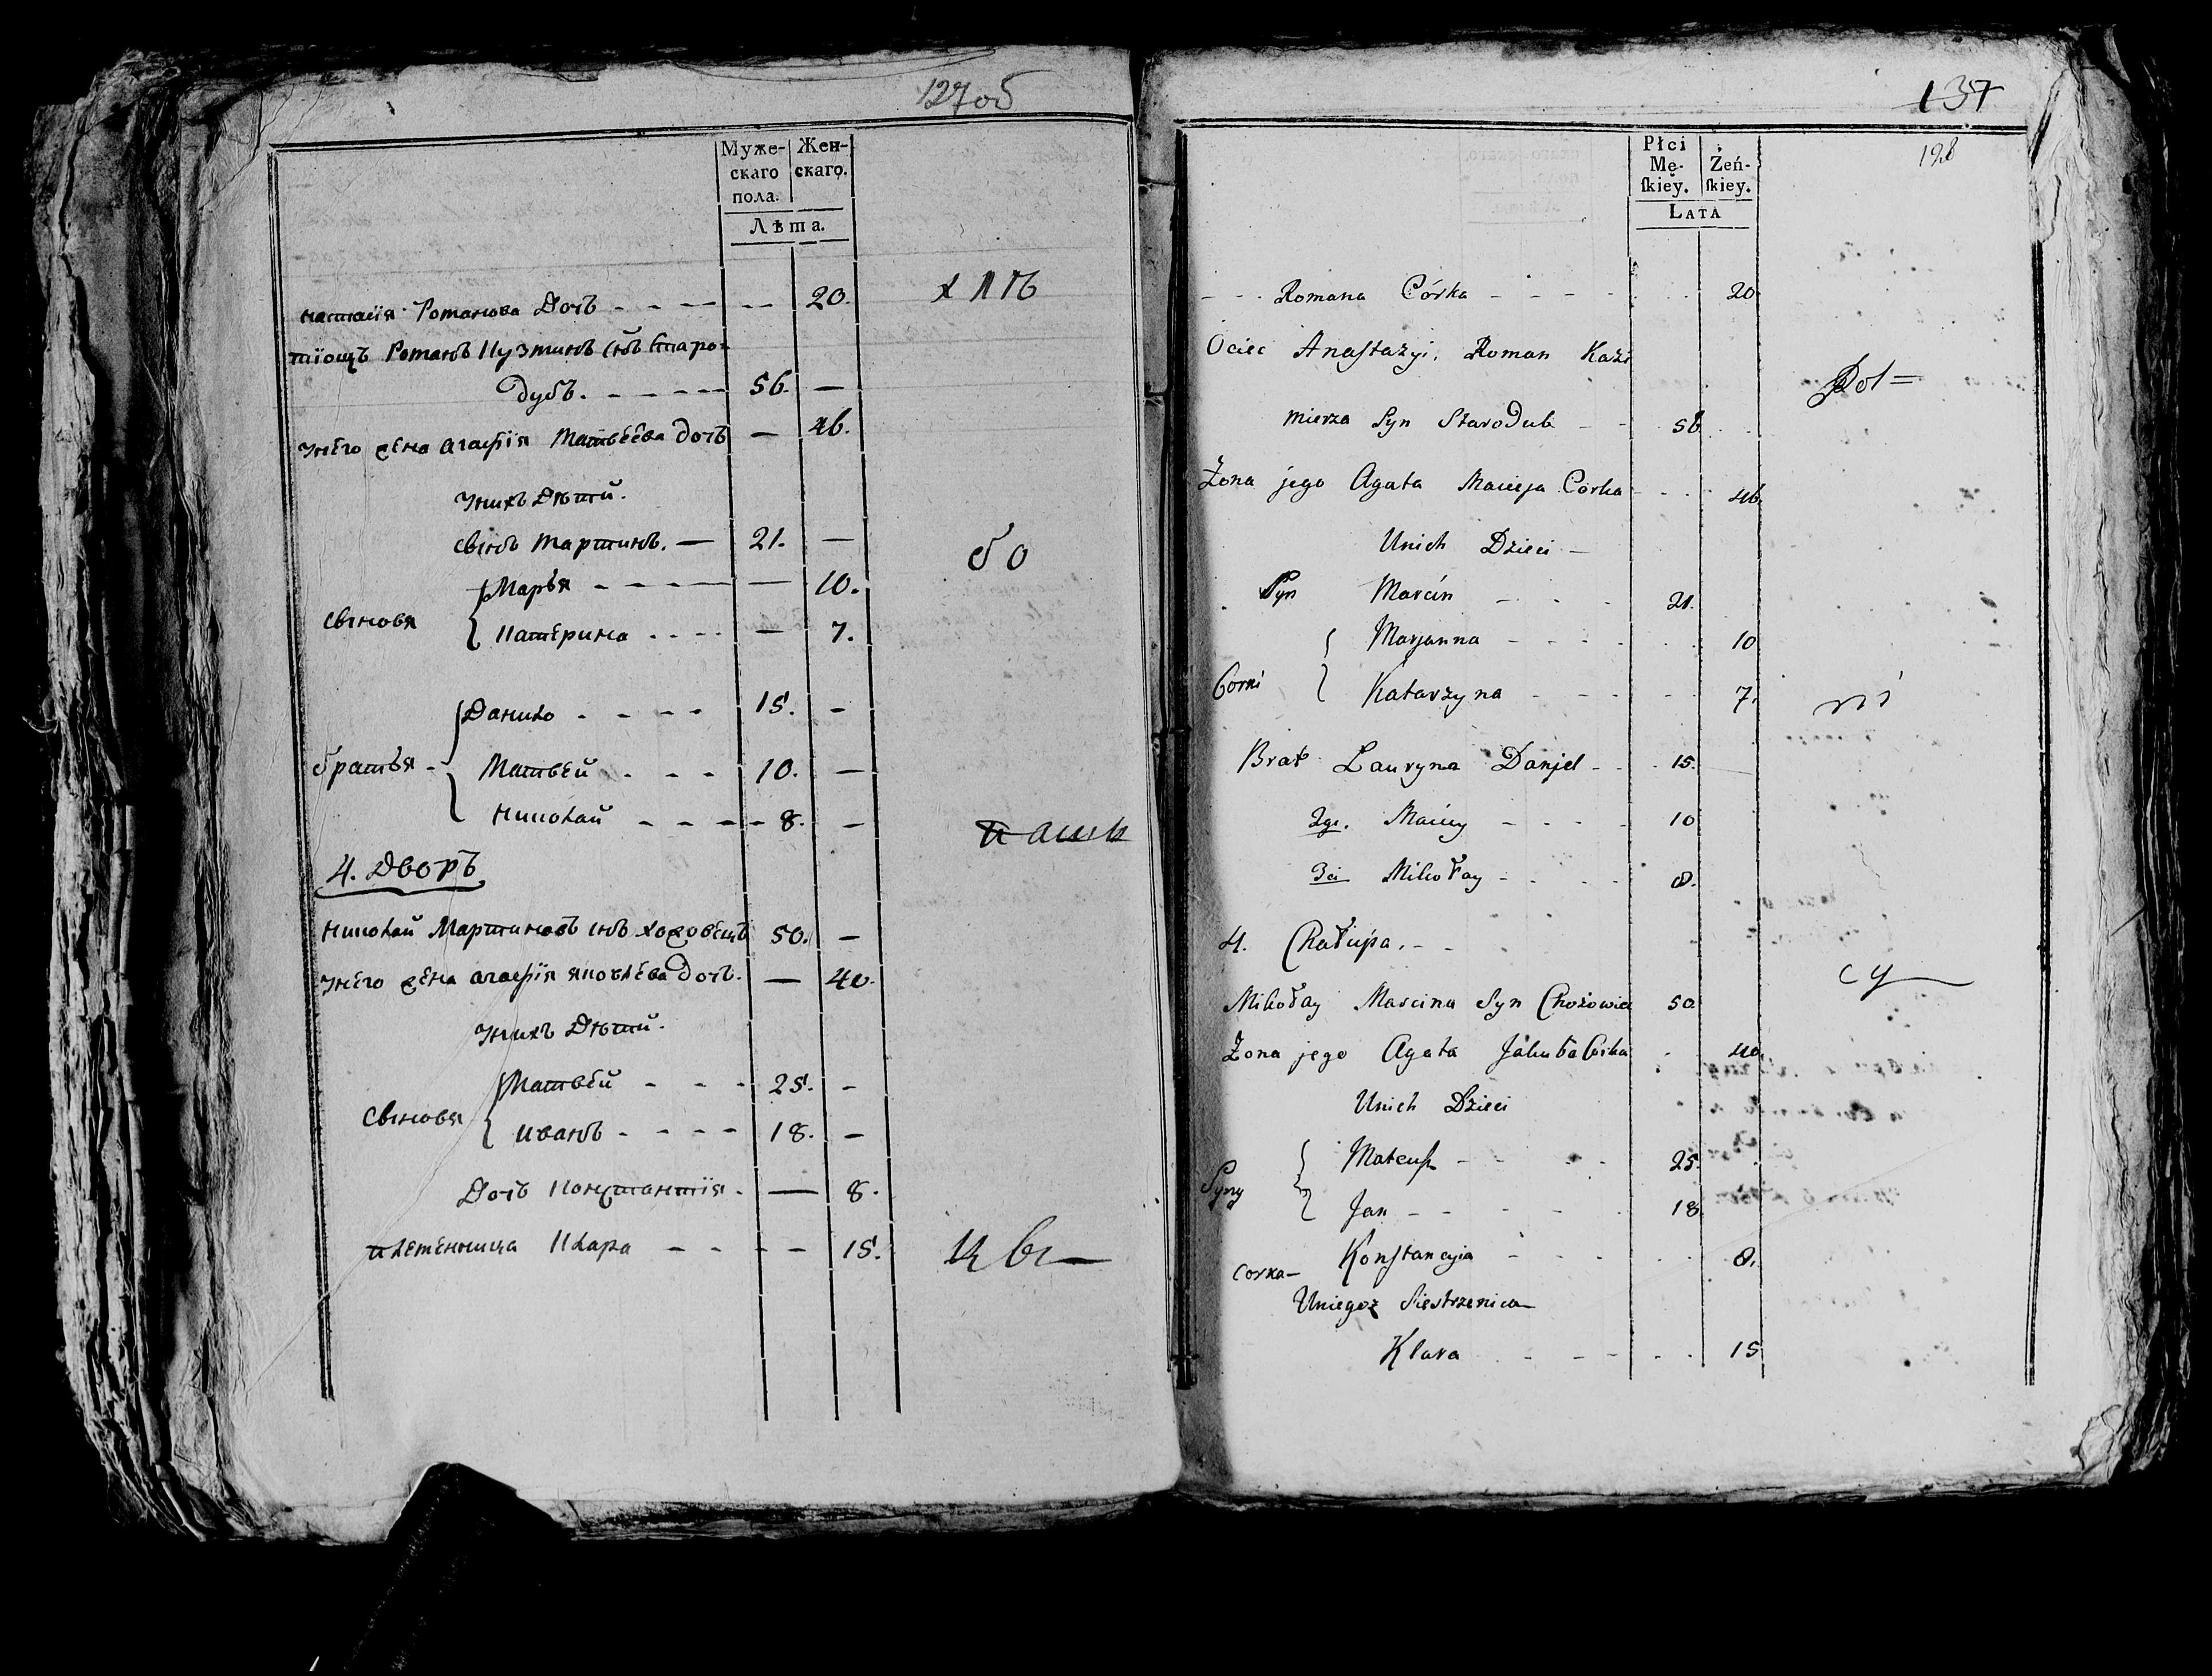 127об
Муже-
скаго
пола.
Жен-
скаго.
Лѣта.
настасія Романова Дочь - - - - - - 20.
Романъ Кузминъ снъ Старо=
дубъ. - - - - - 56. —
унего жена агафія Матвѣева дочь — 46.
Унихъ Дѣти.
сынъ мартинъ. — 21. —
Марья - - - - — 10.
сыновя
Катерина - - - - — 7.
Данило - - - - 15. -
братья -
Матвѣй - - - 10. —
Николай - - - - 8. —
4. Дворъ
николай Мартиновъ снъ хожовецъ 50. —
унего жена агафія яковлева дочь. — 40.
Унихъ Дѣти.
Матвѣй - - - 25. -
сыновя
иванъ - - - - 18. -
Дочь Константія. — 8.
племенница Клара - - - - 15.
б о
137
128
Płci
Mę-
skiey.
Żeń-
skiey.
LATA
- - - Romana Córka - - - - 20.
Ociec Anastazyi. Roman Kazi
mierza Syn Starodub - - 56.
Żona jego Agata Macieja Corka - - 46.
Unich Dzieci -
Syn Marcin - - - 21.
Marjanna - - - - 10
Corki
Katarzyna - - - - 7.
Brat Lauryna Danjel - - 15.
2gi. Maciey - - - - 10
3ci Mikołay - - - - 8.
4. Chałupa. - -
Mikołay Marcina Syn Chożowiec 50.
Żona jego Agata Jakuba Corka - 40.
Unich Dzieci
Mateusz - - - 25.
Syny
Jan - - - - - 18.
Konstancyia - - - - 8.
Corka -
Uniegoż Siestrzenica
Klara - - - - 15